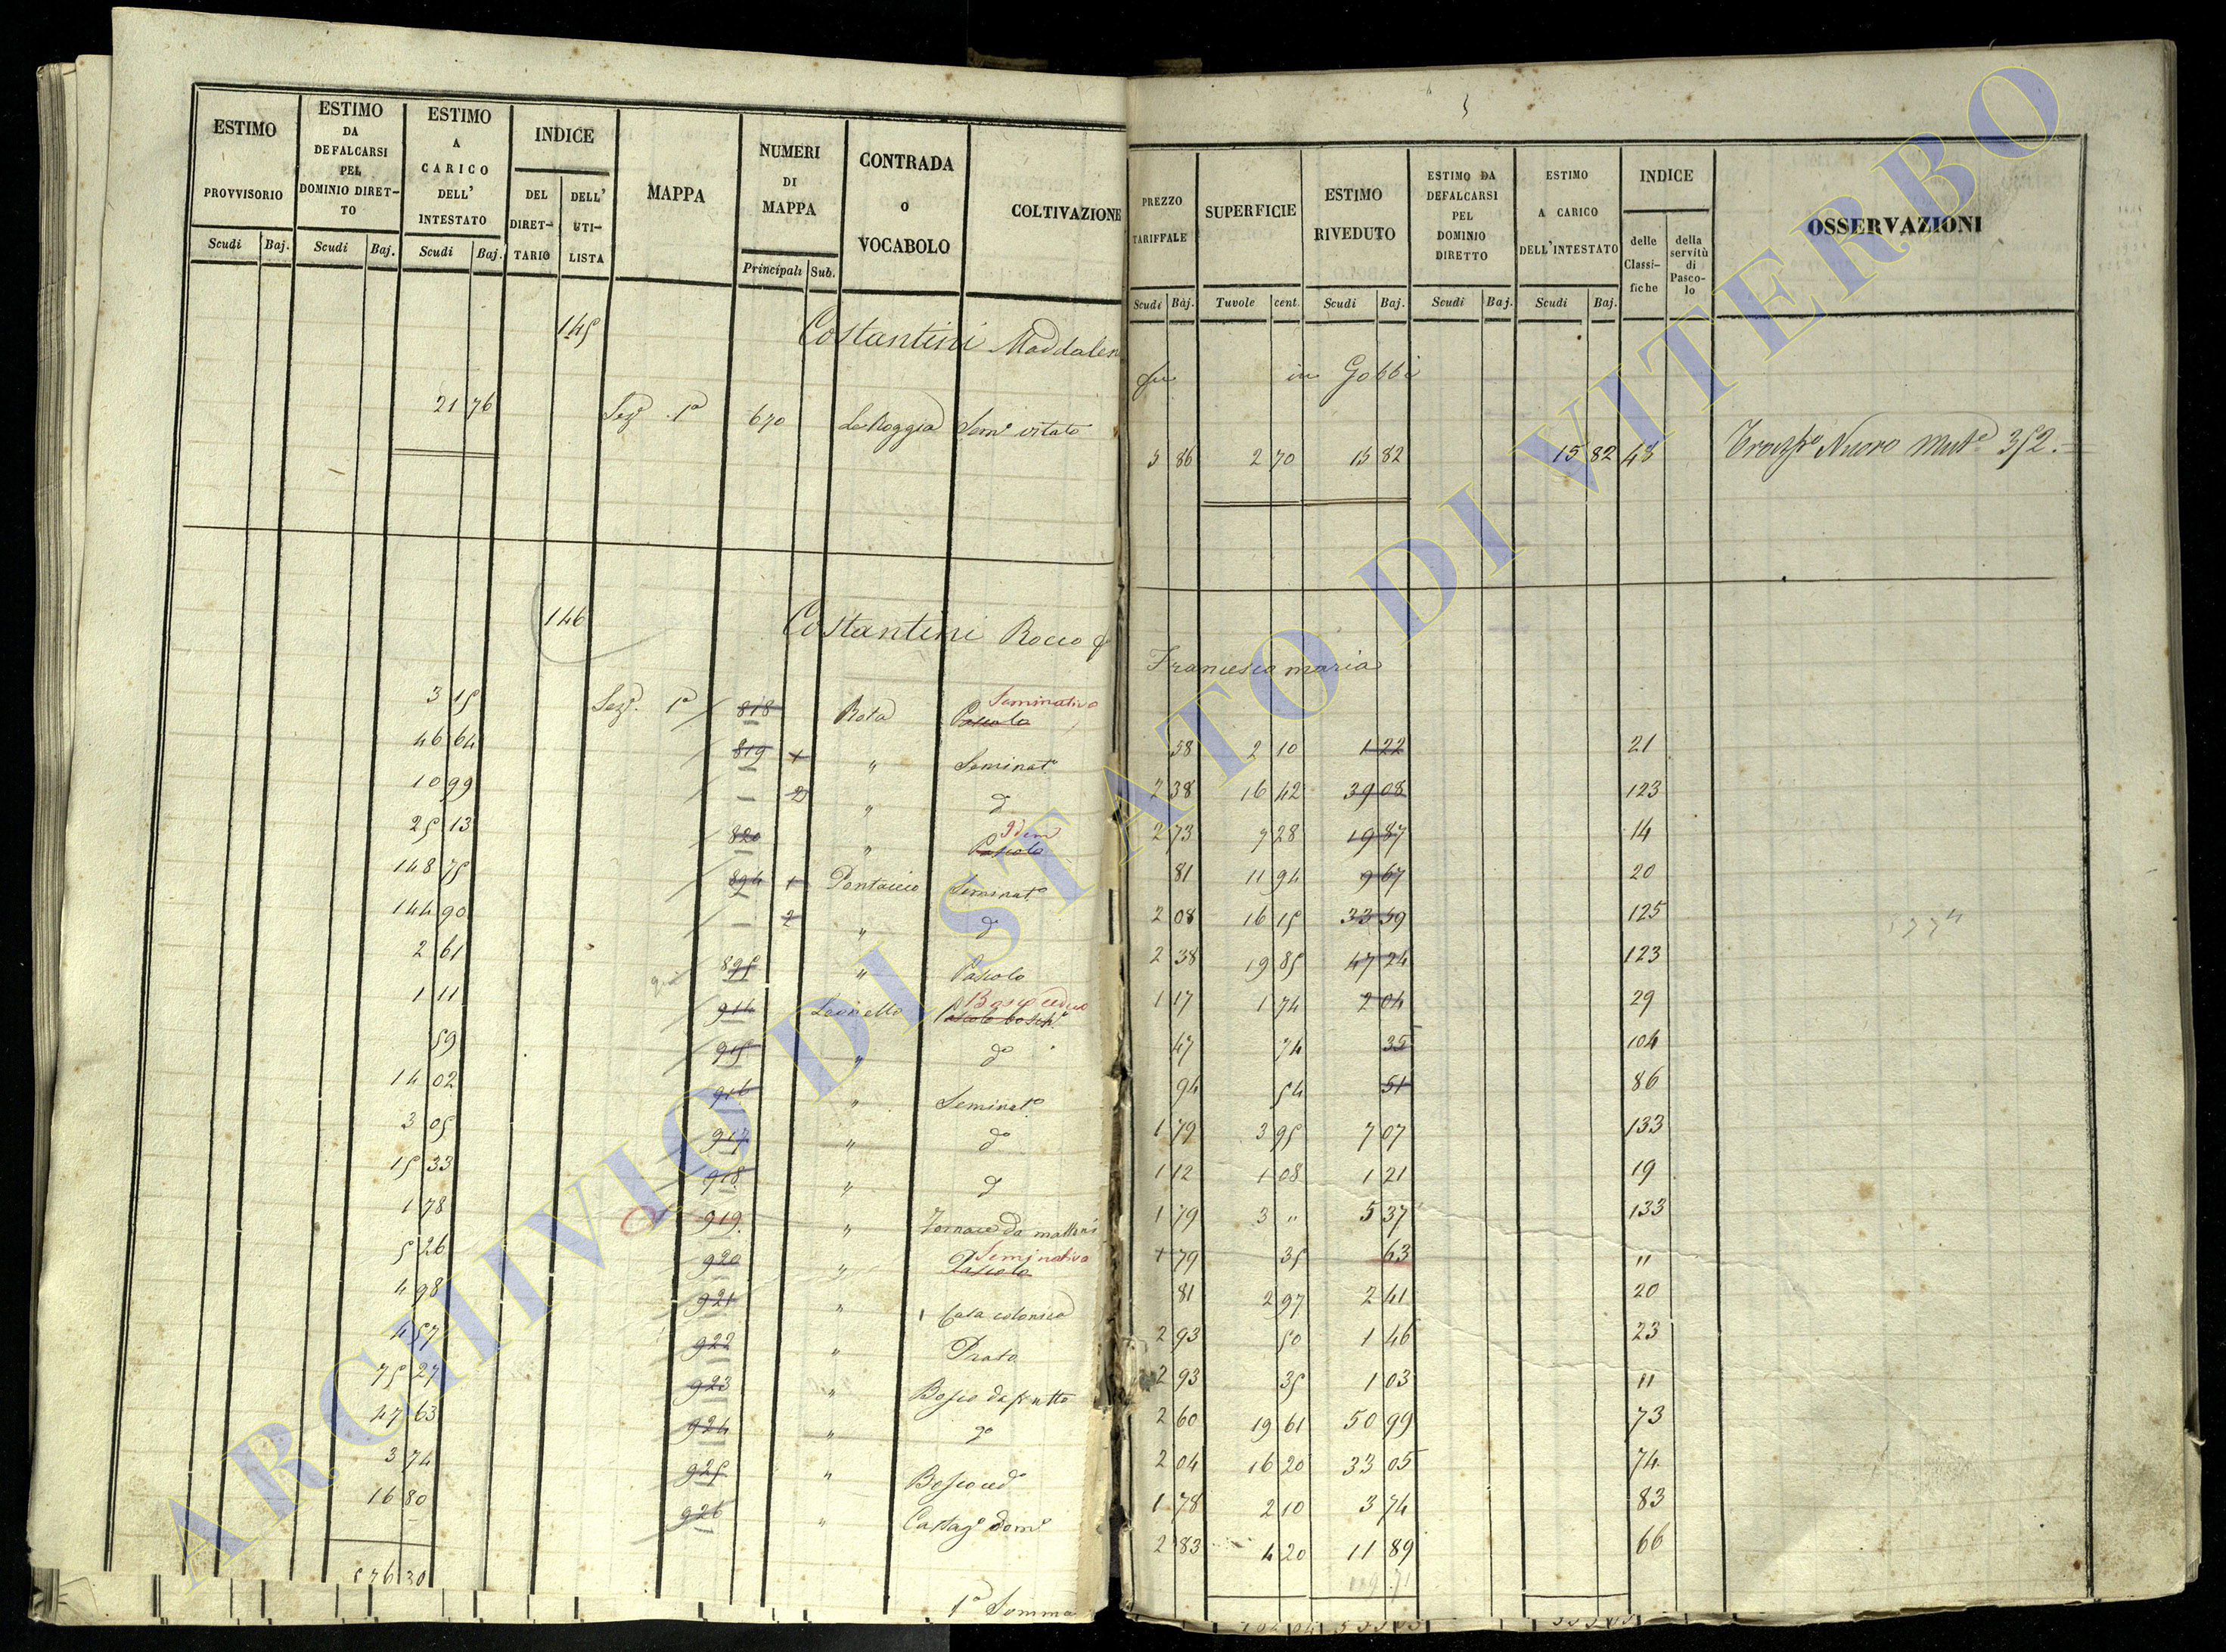 ESTIMO PROVVISORIO Scudi Baj.
ESTIMO DA DEFALCARSI PEL DOMINIO DIRETTO Scudi Baj.
ESTIMO A CARICO DELL' INTESTATO Scudi Baj.
INDICE DEL DIRETTARIO DELL' UTILISTA
MAPPA
NUMERI DI MAPPA Principali Sub.
CONTRADA O VOCABOLO
COLTIVAZIONE
PREZZO TARIFFALE Scudi Baj.
SUPERFICIE Tavole cent.
ESTIMO RIVEDUTO Scudi Baj.
ESTIMO DA DEFALCARSI PEL DOMINIO DIRETTO Scudi Baj.
ESTIMO A CARICO DELL'INTESTATO Scudi Baj.
INDICE delle Classifiche della servitù di Pascolo
OSSERVAZIONI
145 Costantini Maddalen in Gobbi
21 76 Sez.e 1a 670 La Roggia Sem.o vitato 5 86 2 70 15 82 15 82 48 Nuovo Mut.e 352.
146 Costantini Rocco q Francesco maria
3 15 Sez.e 1a 818 Rota Pascolo Seminativo 58 2 10 1 22 21
46 64 819 1 " Seminat.o 2 38 16 42 39 08 123
10 99 — 2 " d 2 73 7 28 19 87 14
25 13 820 " Pascolo Idem 81 11 94 9 67 20
148 75 894 1 Pantaccio Seminat.o 2 08 16 15 33 59 125
144 90 — 2 " d 2 38 19 85 47 24 123
2 61 895 " Pascolo 1 17 1 74 2 04 29
1 11 914 Leonello Pascolo bosch.o Bosco ceduo 47 74 35 104
59 915 " do 94 54 51 86
14 02 916 " Seminat.o 1 79 3 95 7 07 133
3 05 917 " do 1 12 1 08 1 21 19
15 33 918 " d 1 79 3 " 5 37 133
1 78 919 " Fornace da mattoni 1 79 35 63 "
5 26 920 " Pascolo Seminativo 81 2 97 2 41 20
4 98 921 " Casa colonica 2 93 50 1 46 23
4 57 922 " Prato 2 93 35 1 03 11
75 27 923 " Bosco da frutto 2 60 19 61 50 99 73
47 63 924 " do 2 04 16 20 33 05 74
3 74 925 " Bosco ced.o 1 78 2 10 3 74 83
16 80 926 " Castag.o dom.o 2 83 4 20 11 89 66
576 30 1a Somma
ARCHIVIO DI STATO DI VITERBO